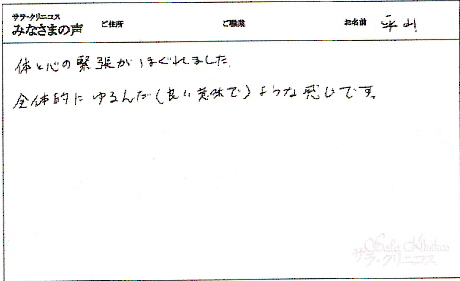 サラ・クリニコス
みなさまの声 ご住所 ご職業 お名前 平山
体と心の緊張がほぐれました。
全体的にゆるんだ(良い意味で)ような感じです。
サラ・クリニコス